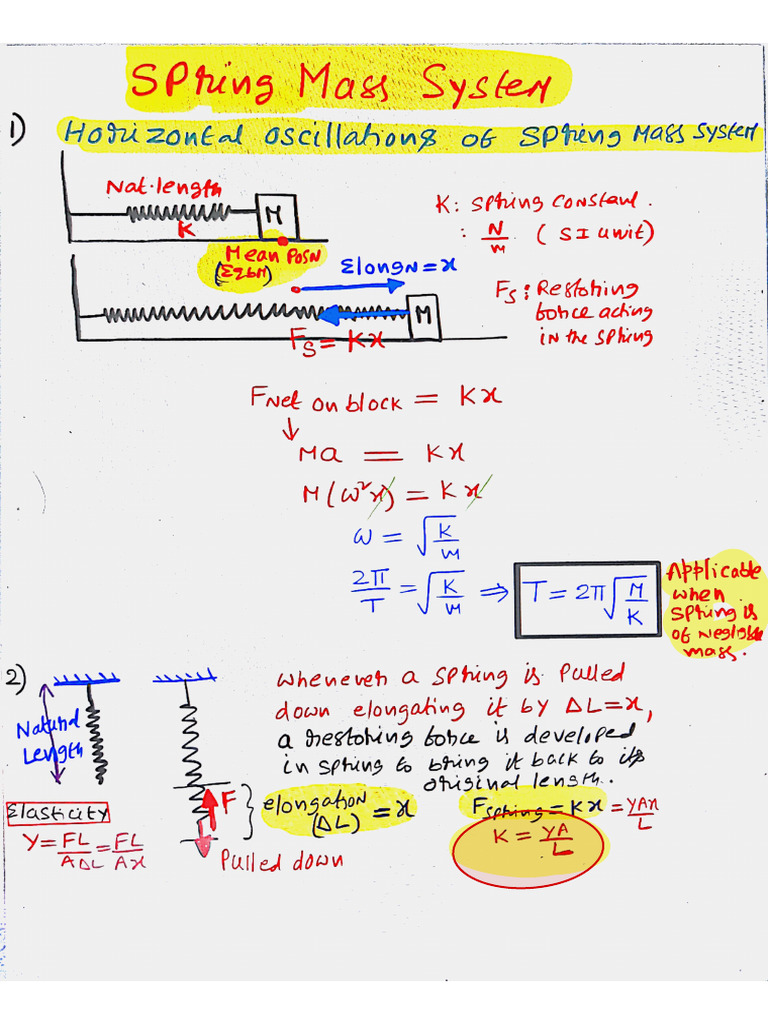 Spring Mass System
1) Horizontal oscillations of Spring Mass System
Nat. length
K
M
Mean Posn
(Eqbm)
ElongN = x
M
Fs = Kx
K: Spring constant.
: N/m (SI unit)
Fs: Restoring
force acting
in the spring
FNet on block = Kx
↓
Ma = Kx
M(ω²x) = Kx
ω = √(K/m)
2π/T = √(K/m) ⇒ T = 2π√(M/K)
Applicable
when
spring is
of negligible
mass.
2)
Natural
Length
Whenever a spring is pulled
down elongating it by ΔL = x,
a restoring force is developed
in spring to bring it back to its
original length.
F
elongation
(ΔL) = x
Pulled down
Fspring = Kx = YAx/L
K = YA/L
Elasticity
Y = FL/AΔL = FL/Ax